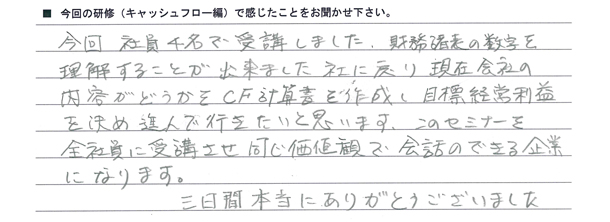 ■ 今回の研修（キャッシュフロー編）で感じたことをお聞かせ下さい。
今回 社員4名で受講しました。財務諸表の数字を
理解することが出来ました社に戻り現在会社の
内容がどうかをCF計算書を作成し目標経常利益
を決め進んで行きたいと思います。このセミナーを
全社員に受講させ同じ価値額で会話のできる企業
になります。
三日間本当にありがとうございました